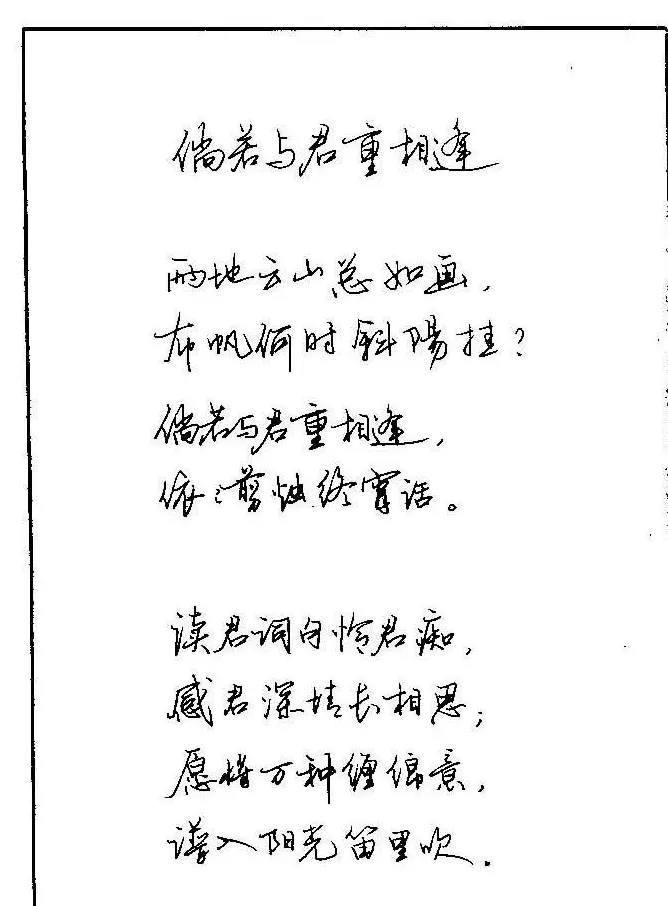 倘若与君重相逢
两地云山总如画，
布帆何时斜陽挂？
倘若与君重相逢，
依依剪烛终宵话。
读君词句怜君痴，
感君深情长相思；
愿将万种缠绵意，
谱入阳克笛里吹．